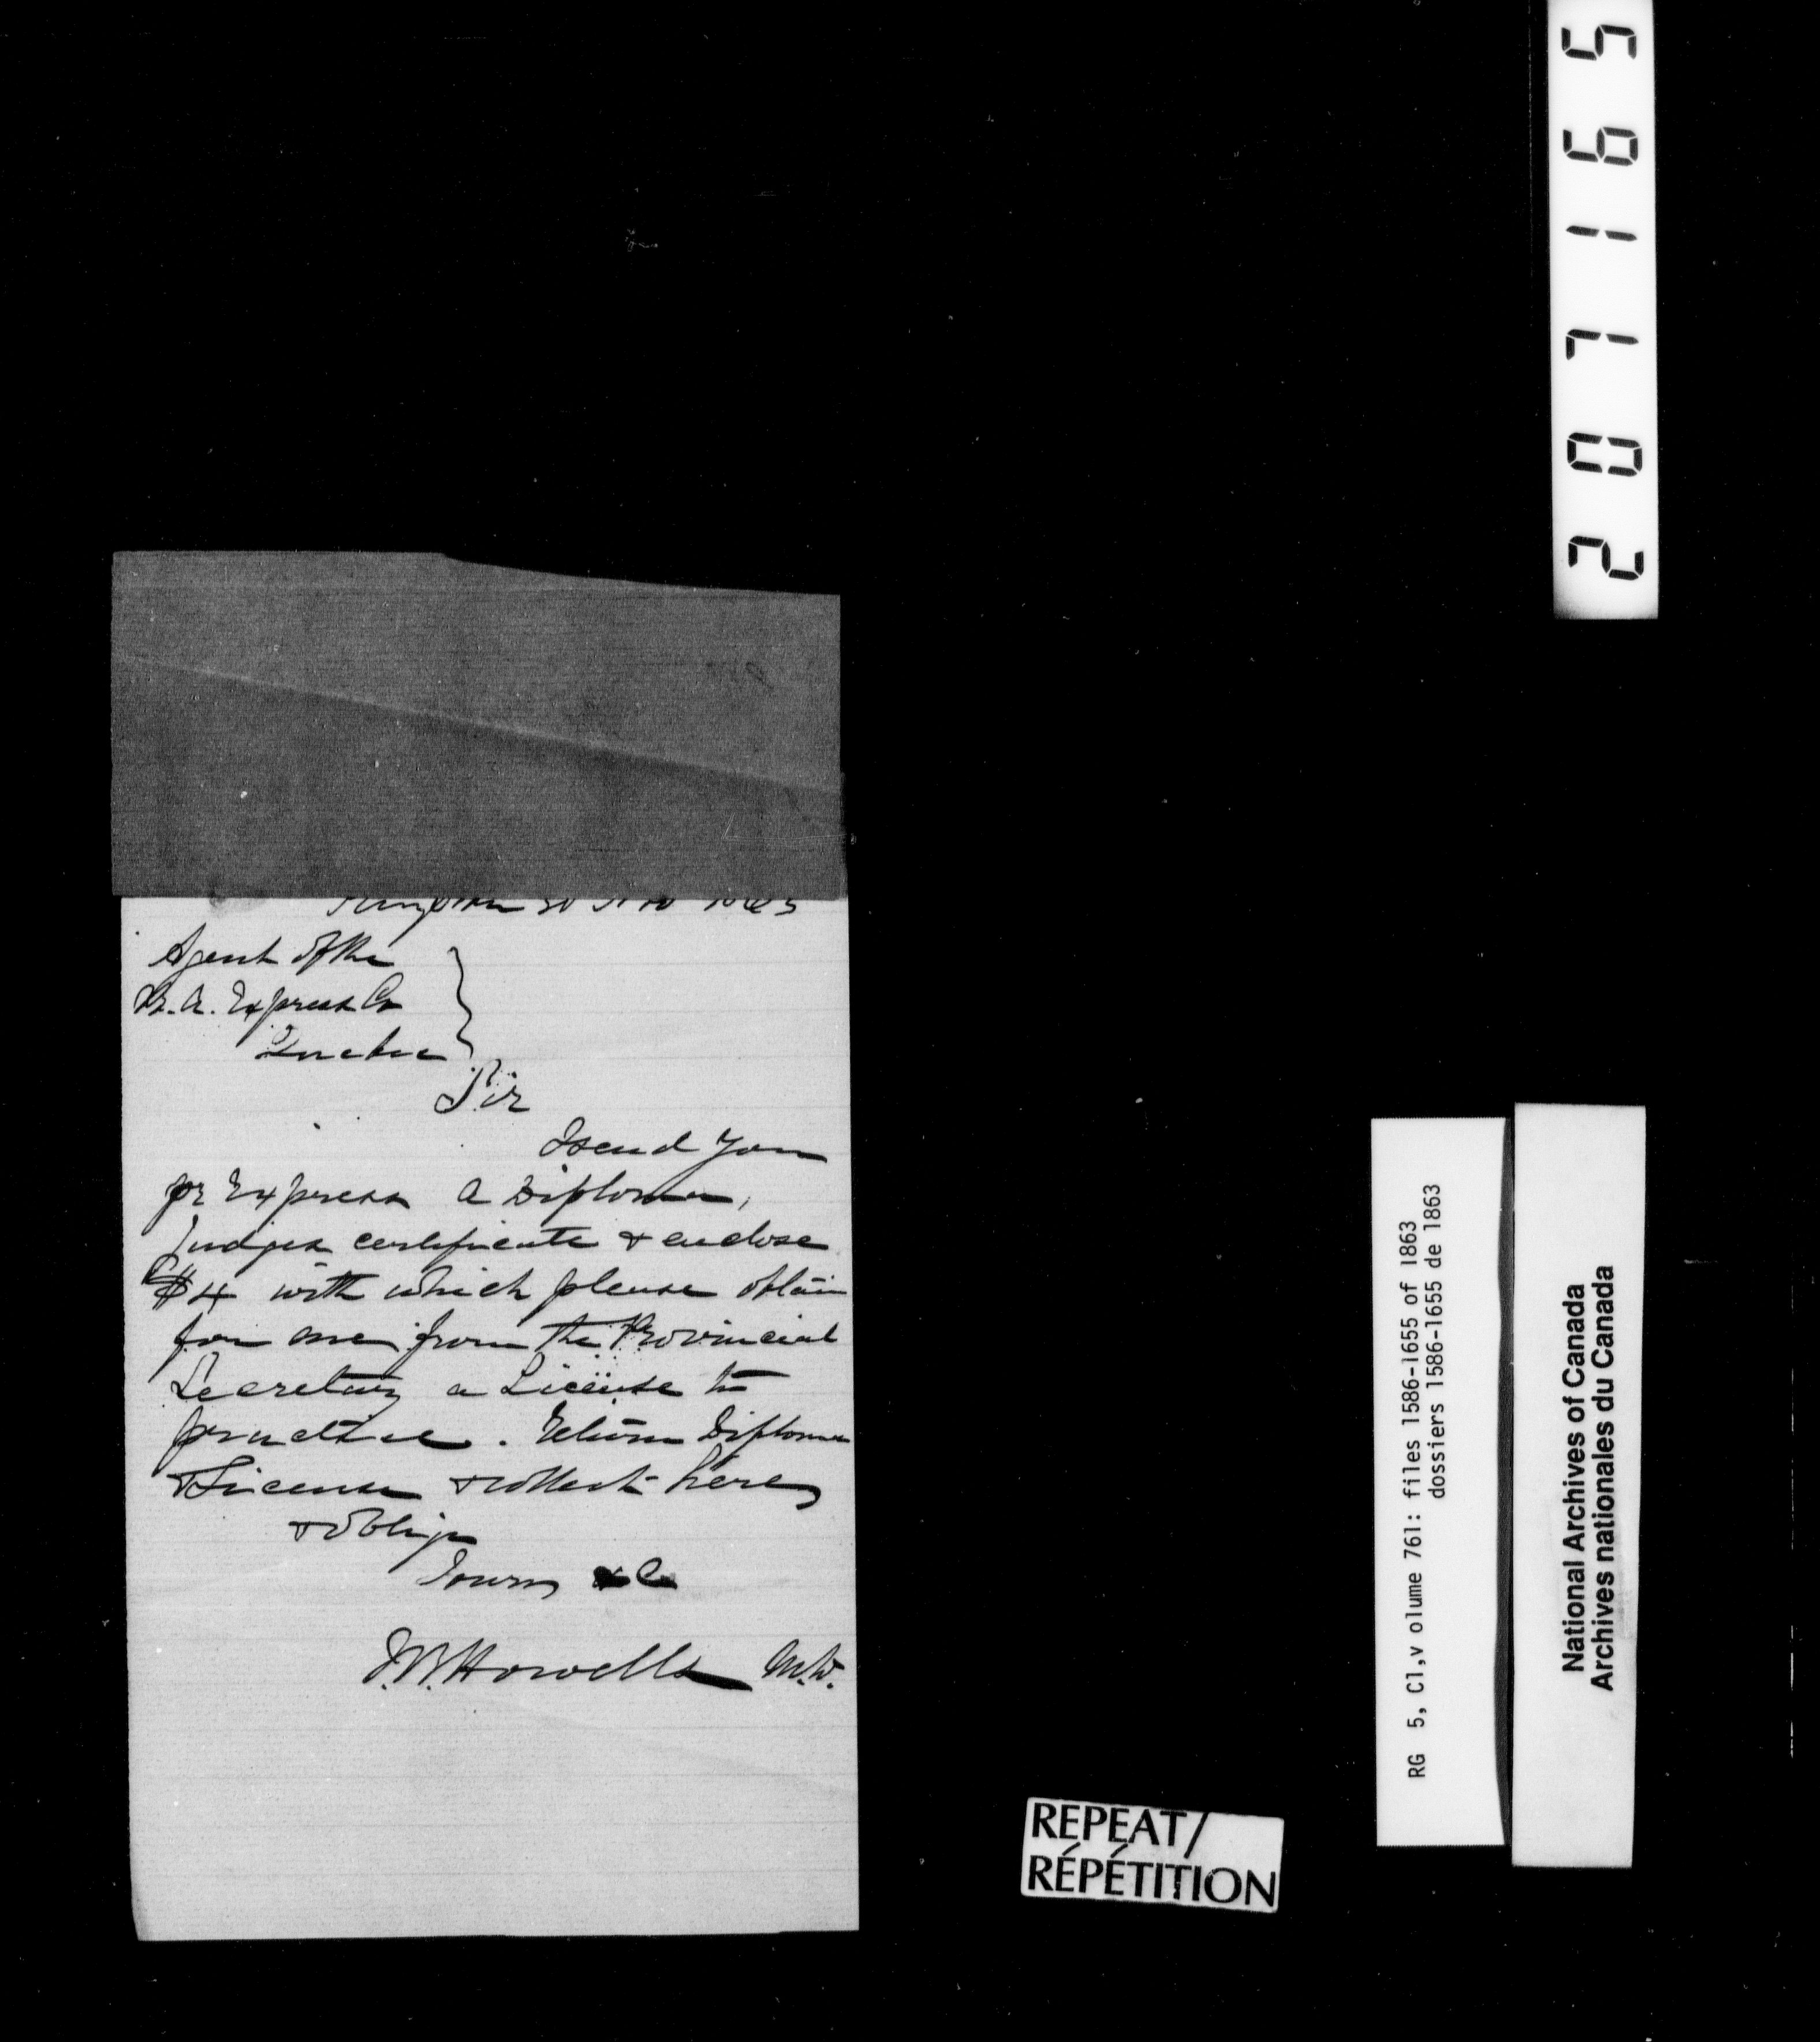 Kingston 30 Nov 1863
Agent of the
B. A. Express Co
Quebec
Sir
I send you
pr Express a Diploma,
Judges certificate & enclose
$4 with which please obtain
for me from the Provincial
Secretary a License to
practice. Return Diploma
& License & collect here
& oblige
Yours &c
Howells M.D.
207165
RG 5, C1,v olume 761: files 1586-1655 of 1863
dossiers 1586-1655 de 1863
National Archives of Canada
Archives nationales du Canada
REPEAT/
RÉPÉTITION